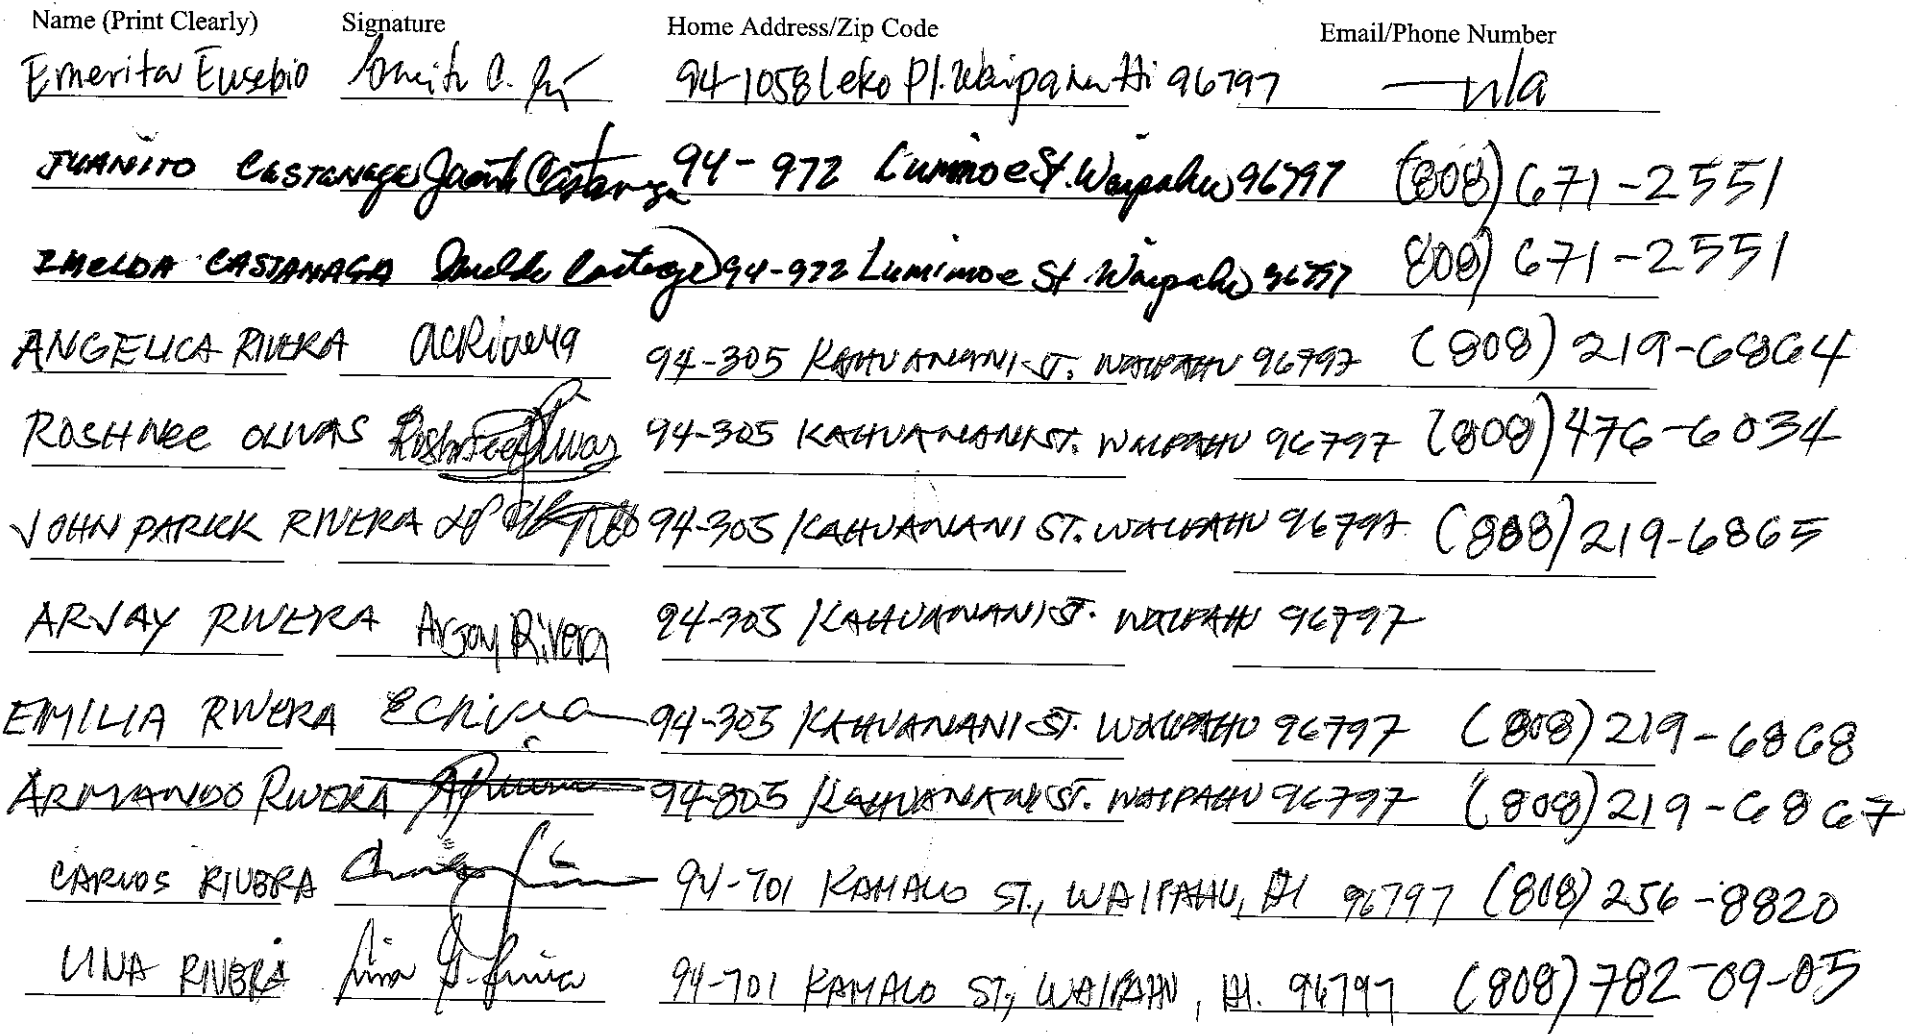 Name (Print Clearly) Signature Home Address/Zip Code Email/Phone Number
Emerita Eusebio 94-1058 Leko Pl. Waipahu Hi 96797 n/a
JUANITO CASTANAGA Juanito Castanaga 94-972 Lumimoe St. Waipahu 96797 (808) 671-2551
IMELDA CASTANAGA Imelda Castanaga 94-972 Lumimoe St. Waipahu 96797 808) 671-2551
ANGELICA RIVERA acRivera 94-305 KAHUANANI ST. WAIPAHU 96797 (808) 219-6864
ROSHNEE OLIVAS Roshnee Olivas 94-305 KAHUANANI ST. WAIPAHU 96797 (808) 476-6034
JOHN PARKK RIVERA 94-305 KAHUANANI ST. WAIPAHU 96797 (808) 219-6865
ARJAY RIVERA Arjay Rivera 94-305 KAHUANANI ST. WAIPAHU 96797
EMILIA RIVERA ECRivera 94-305 KAHUANANI ST. WAIPAHU 96797 (808) 219-6868
ARMANDO RIVERA 94-305 KAHUANANI ST. WAIPAHU 96797 (808) 219-6867
CARLOS RIVERA 94-701 KAHALO ST., WAIPAHU, HI 96797 (808) 256-8820
LINA RIVERA Lina G. Rivera 94-701 KAHALO ST, WAIPAHU, HI. 96797 (808) 782-09-05